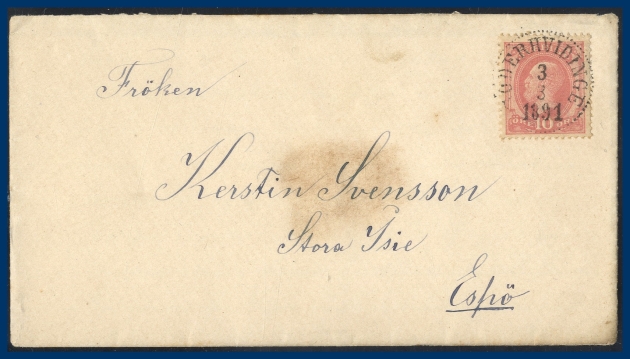 Fröken
Kerstin Svensson
Stora Isie
Espö
ÖDERHVIDINGE
3
3
1891
10